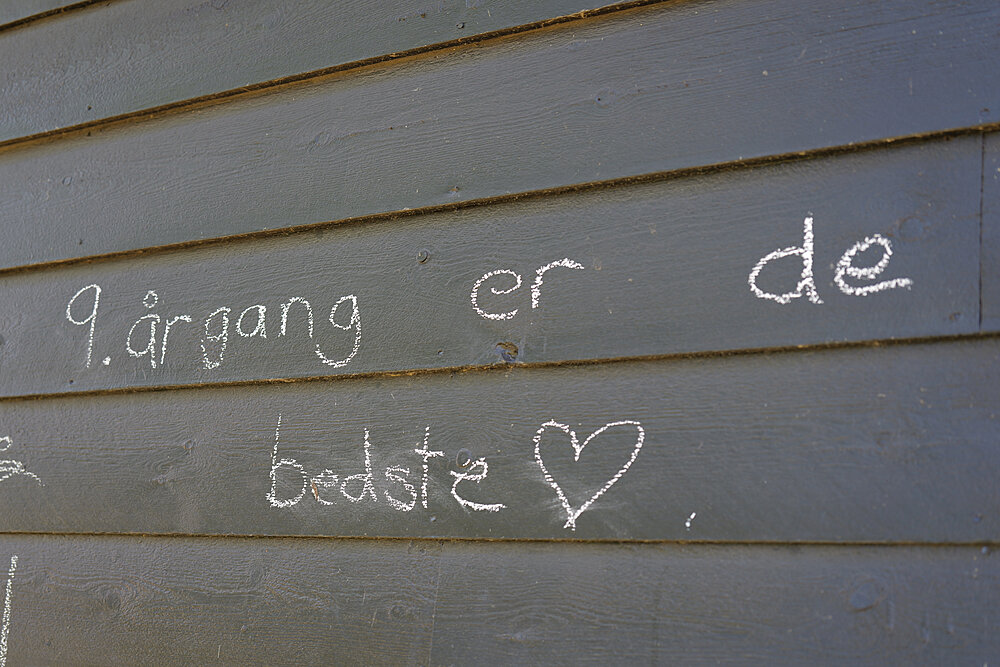 9. årgang er de
bedste ♡